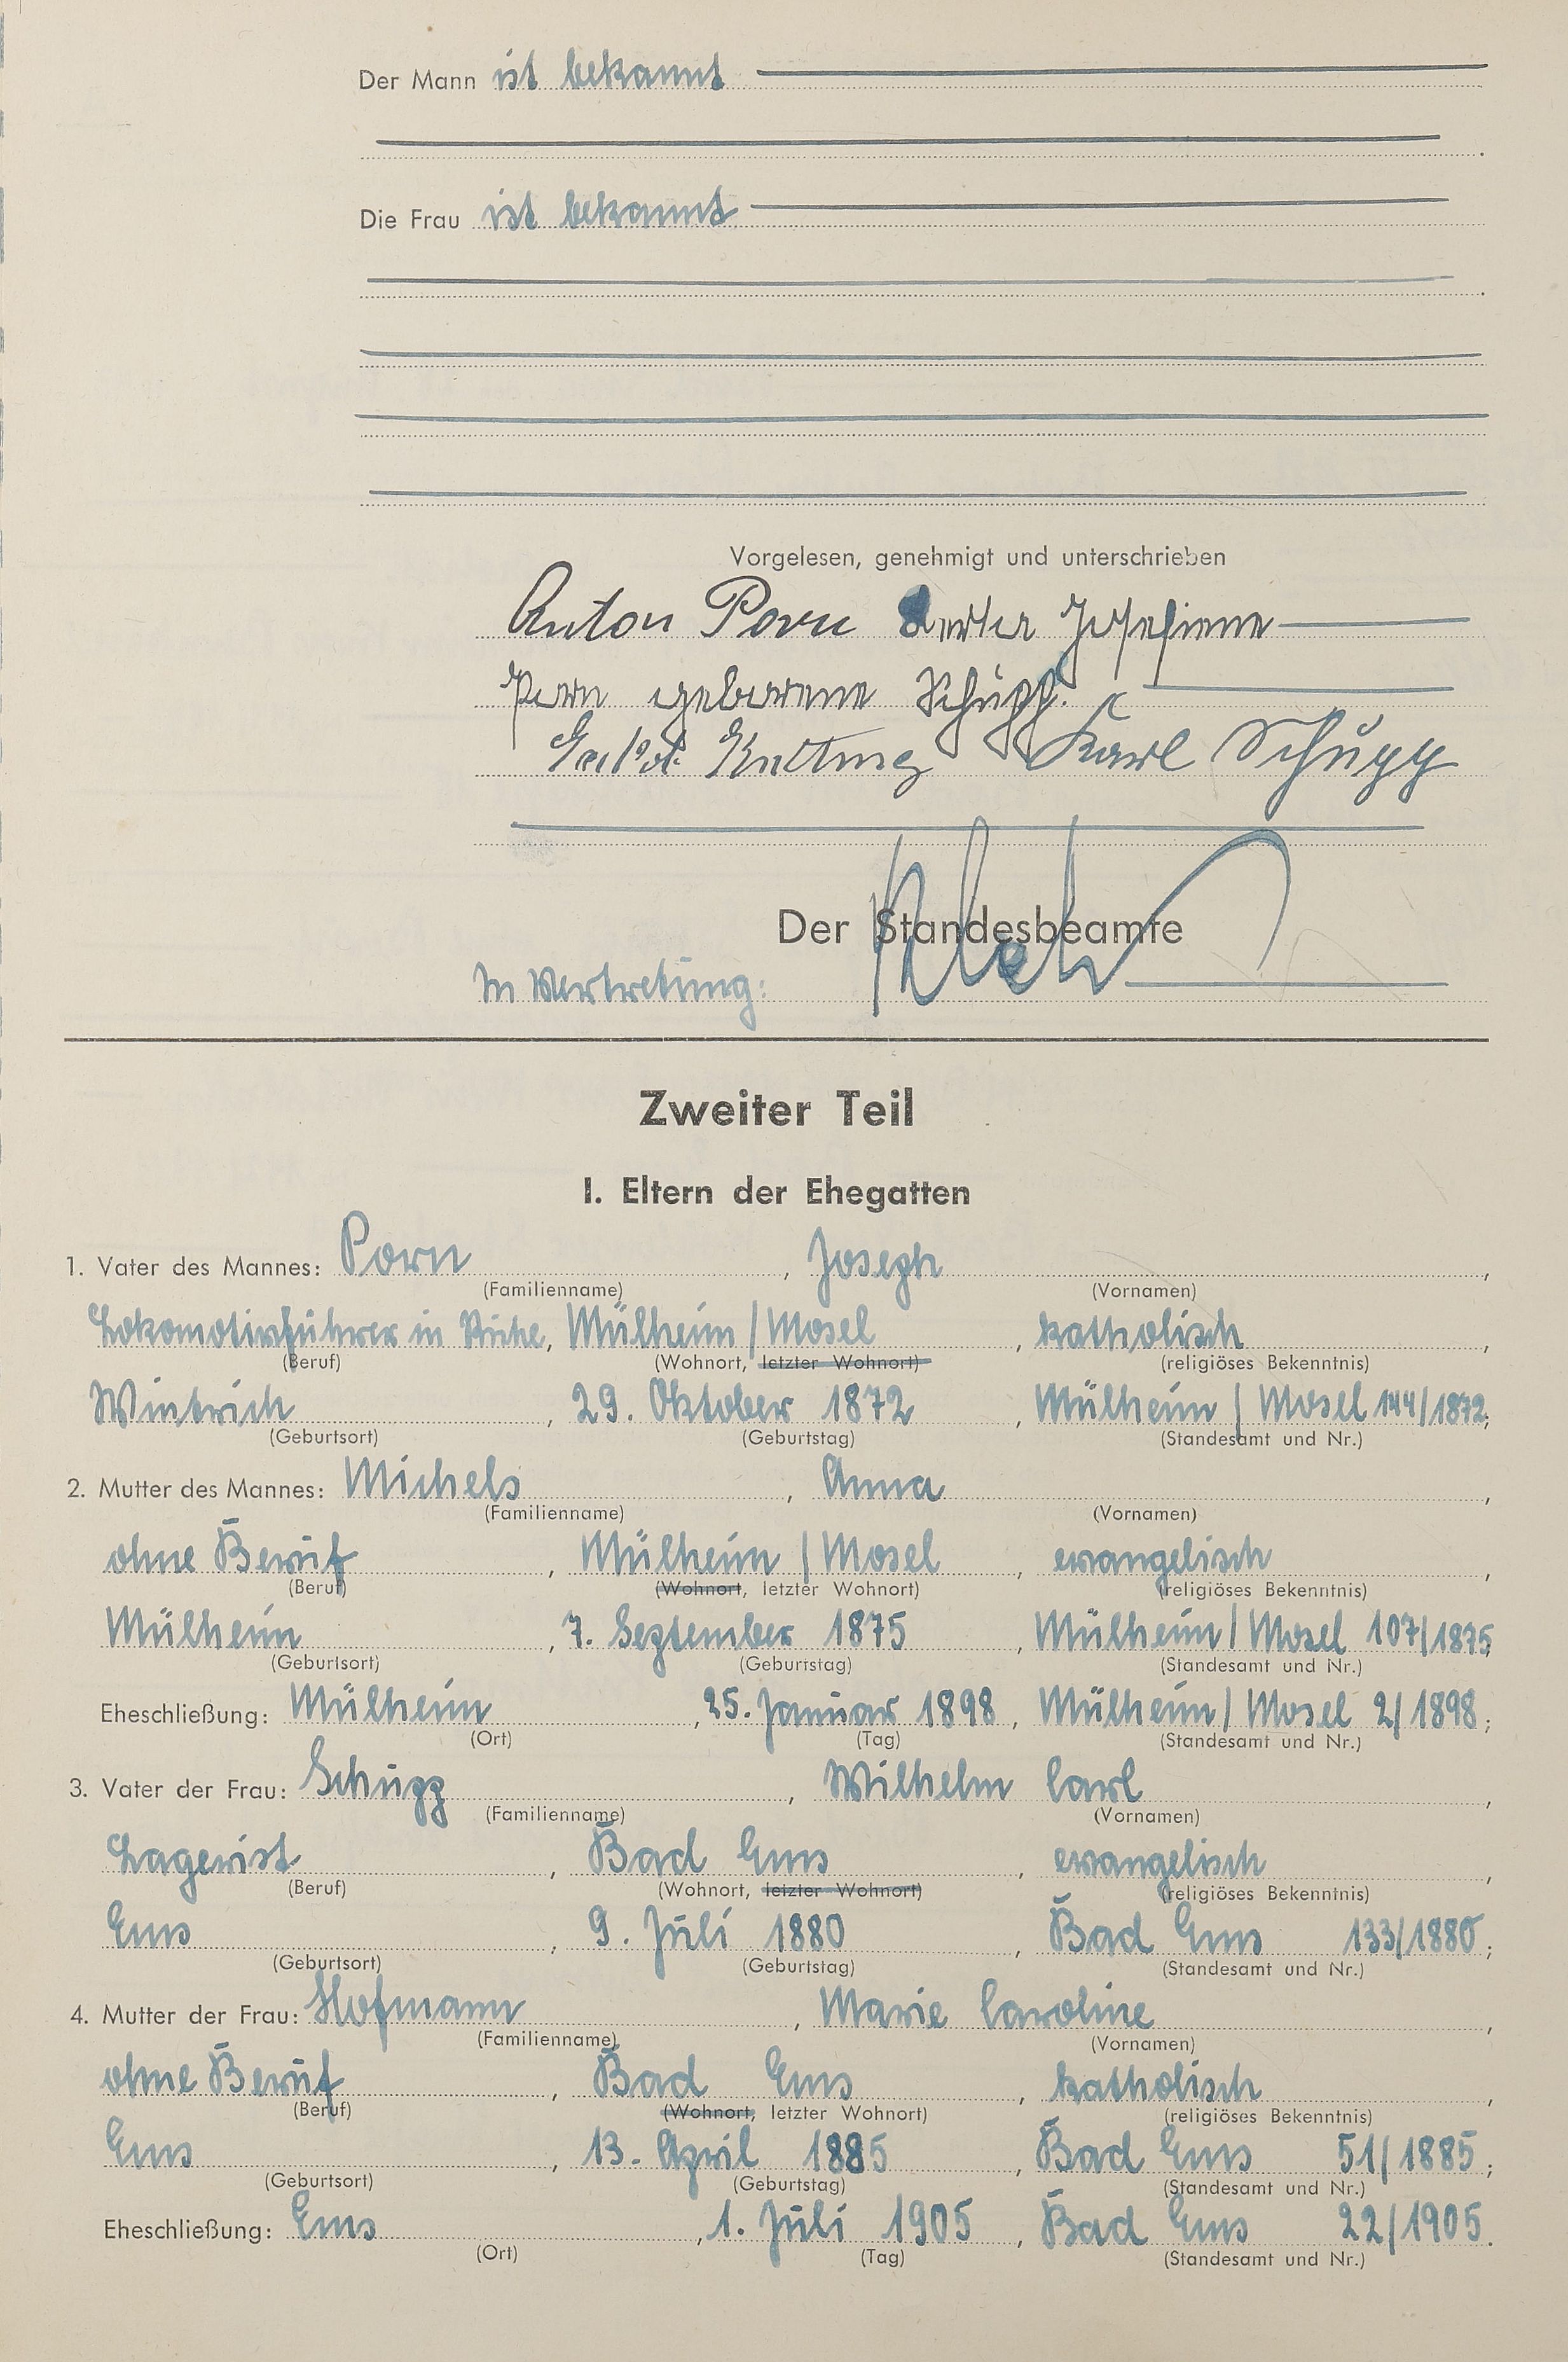 Der Mann ist bekannt
Die Frau ist bekannt
Vorgelesen, genehmigt und unterschrieben
Anton Porn Josefiene
Porn geborene Schupp.
Karl Schupp
Der Standesbeamte
In Vertretung:
Zweiter Teil
I. Eltern der Ehegatten
1. Vater des Mannes: Porn, Joseph,
(Familienname) (Vornamen)
Lokomotivführer in Ruhe, Mülheim/Mosel, katholisch,
(Beruf) (Wohnort, letzter Wohnort) (religiöses Bekenntnis)
Wintrich, 29. Oktober 1872, Mülheim/Mosel 144/1872;
(Geburtsort) (Geburtstag) (Standesamt und Nr.)
2. Mutter des Mannes: Michels, Anna,
(Familienname) (Vornamen)
ohne Beruf, Mülheim/Mosel, evangelisch,
(Beruf) (Wohnort, letzter Wohnort) (religiöses Bekenntnis)
Mülheim, 7. September 1875, Mülheim/Mosel 107/1875,
(Geburtsort) (Geburtstag) (Standesamt und Nr.)
Eheschließung: Mülheim, 25. Januar 1898, Mülheim/Mosel 2/1898;
(Ort) (Tag) (Standesamt und Nr.)
3. Vater der Frau: Schupp, Wilhelm Carl,
(Familienname) (Vornamen)
Lagerist, Bad Ems, evangelisch,
(Beruf) (Wohnort, letzter Wohnort) (religiöses Bekenntnis)
Ems, 9. Juli 1880, Bad Ems 133/1880;
(Geburtsort) (Geburtstag) (Standesamt und Nr.)
4. Mutter der Frau: Hofmann, Marie Caroline,
(Familienname) (Vornamen)
ohne Beruf, Bad Ems, katholisch,
(Beruf) (Wohnort, letzter Wohnort) (religiöses Bekenntnis)
Ems, 13. April 1885, Bad Ems 51/1885;
(Geburtsort) (Geburtstag) (Standesamt und Nr.)
Eheschließung: Ems, 1. Juli 1905, Bad Ems 22/1905.
(Ort) (Tag) (Standesamt und Nr.)